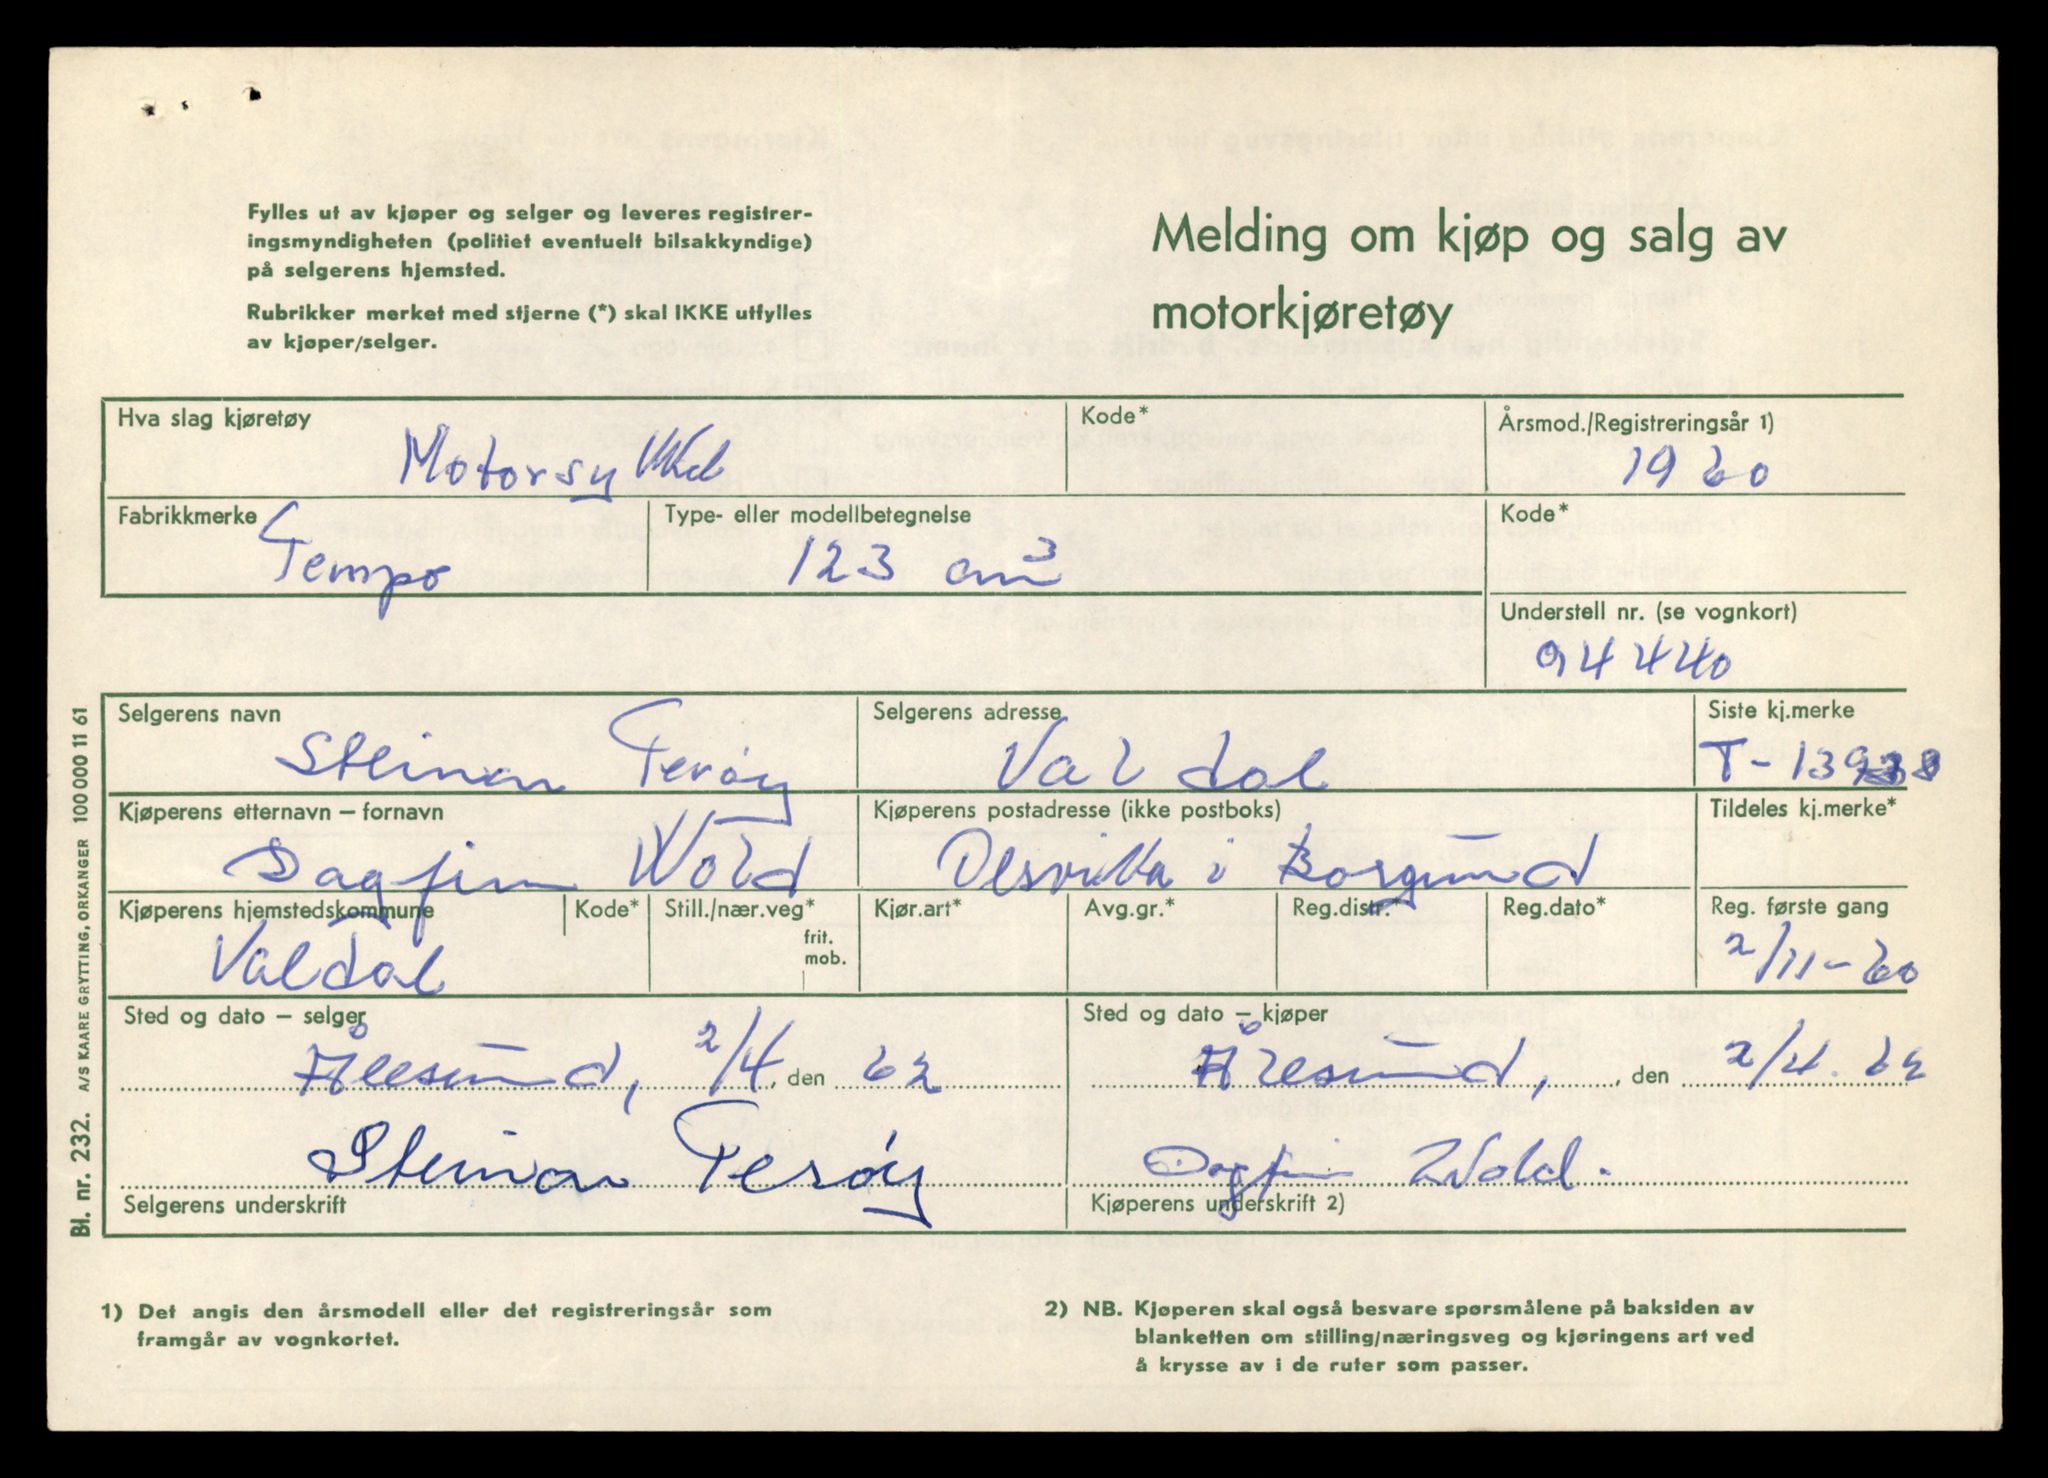 Fylles ut av kjøper og selger og leveres registrer-
ingsmyndigheten (politiet eventuelt bilsakkyndige)
på selgerens hjemsted.
Rubrikker merket med stjerne (*) skal IKKE utfylles
av kjøper/selger.
Melding om kjøp og salg av
motorkjøretøy
Hva slag kjøretøy
Kode*
Årsmod./Registreringsår 1)
Motorsykkel
1960
Fabrikkmerke
Type- eller modellbetegnelse
Kode*
Tempo
123 cm³
Understell nr. (se vognkort)
94440
Selgerens navn
Selgerens adresse
Siste kj.merke
Steinar Terøy
Valdal
T-
Kjøperens etternavn – fornavn
Kjøperens postadresse (ikke postboks)
Tildeles kj.merke*
Dagfinn Wold
i Borgund
Kjøperens hjemstedskommune
Kode*
Still./nær.veg*
frit.
mob.
Kjør.art*
Avg.gr.*
Reg.distr.*
Reg.dato*
Reg. første gang
Valdal
2/11-60
Sted og dato – selger
Sted og dato – kjøper
Ålesund, 2/4, den 62
Ålesund, , den 2/4. 62
Steinar Terøy
Dagfinn Wold.
Selgerens underskrift
Kjøperens underskrift 2)
1) Det angis den årsmodell eller det registreringsår som
framgår av vognkortet.
2) NB. Kjøperen skal også besvare spørsmålene på baksiden av
blanketten om stilling/næringsveg og kjøringens art ved
å krysse av i de ruter som passer.
Bl. nr. 232. A/S KAARE GRYTTING, ORKANGER 100 000 11 61